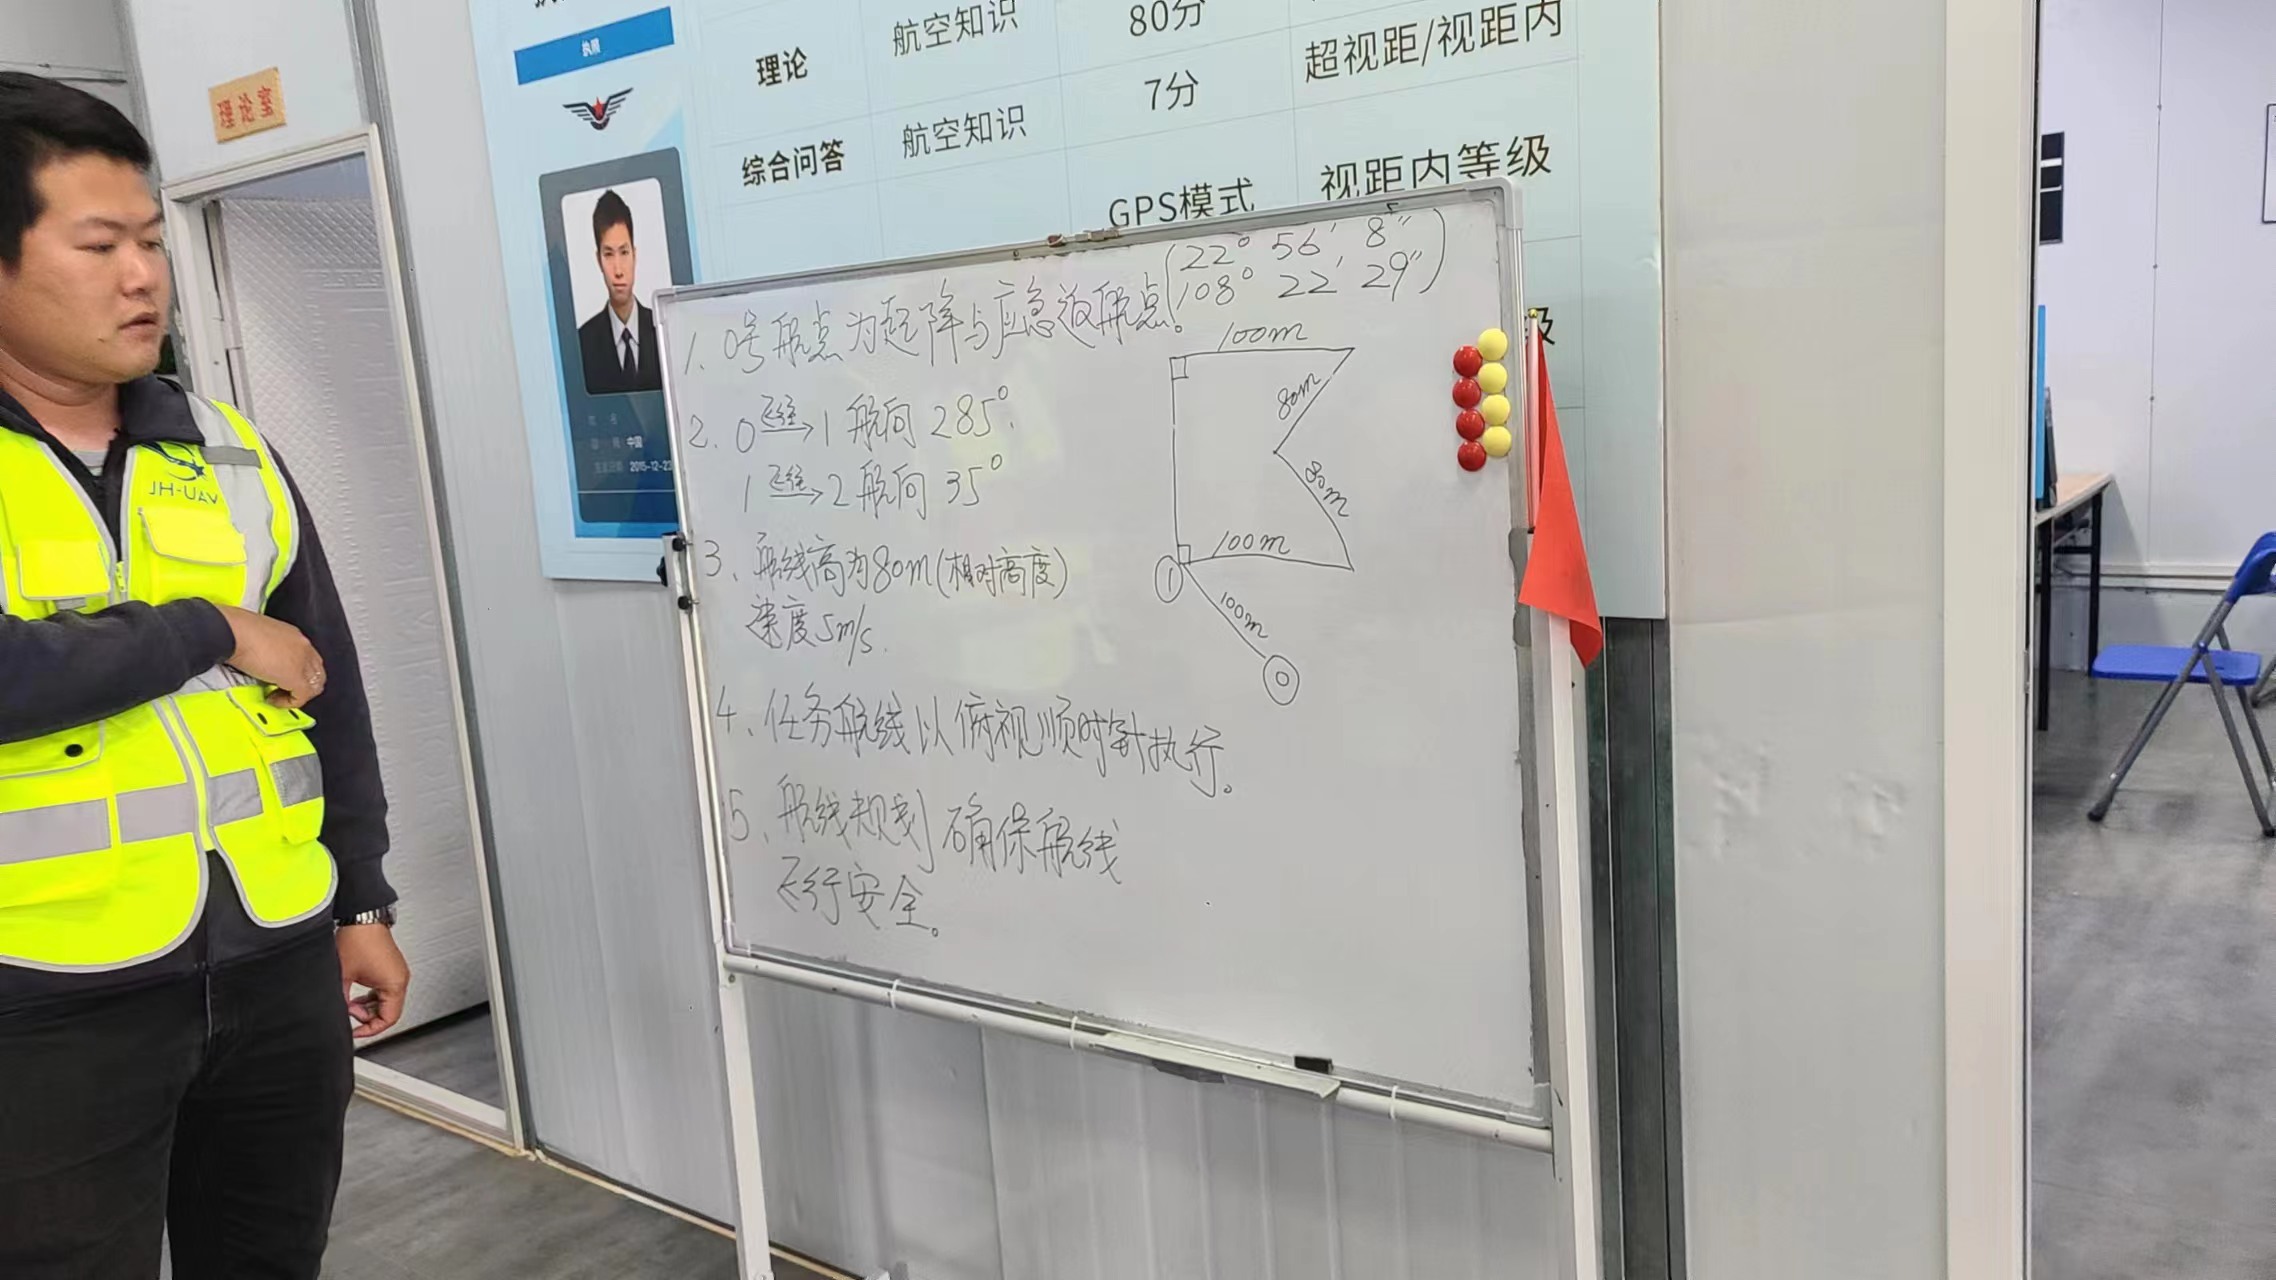 执照
理论室
理论
航空知识
80分
超视距/视距内
综合问答
航空知识
7分
GPS模式
视距内等级
级
中国
2015-12-23
JH-UAV
1. 0号航点为起降与应急返航点。(22° 56′ 8″
108° 22′ 29″)
2. 0 飞往→ 1 航向 285°.
1 飞往→ 2 航向 35°
3、航线高为80m(相对高度)
速度5m/s.
4、任务航线以俯视顺时针执行。
5、航线规划 确保航线
飞行安全。
100m
80m
80m
100m
①
100m
⓪